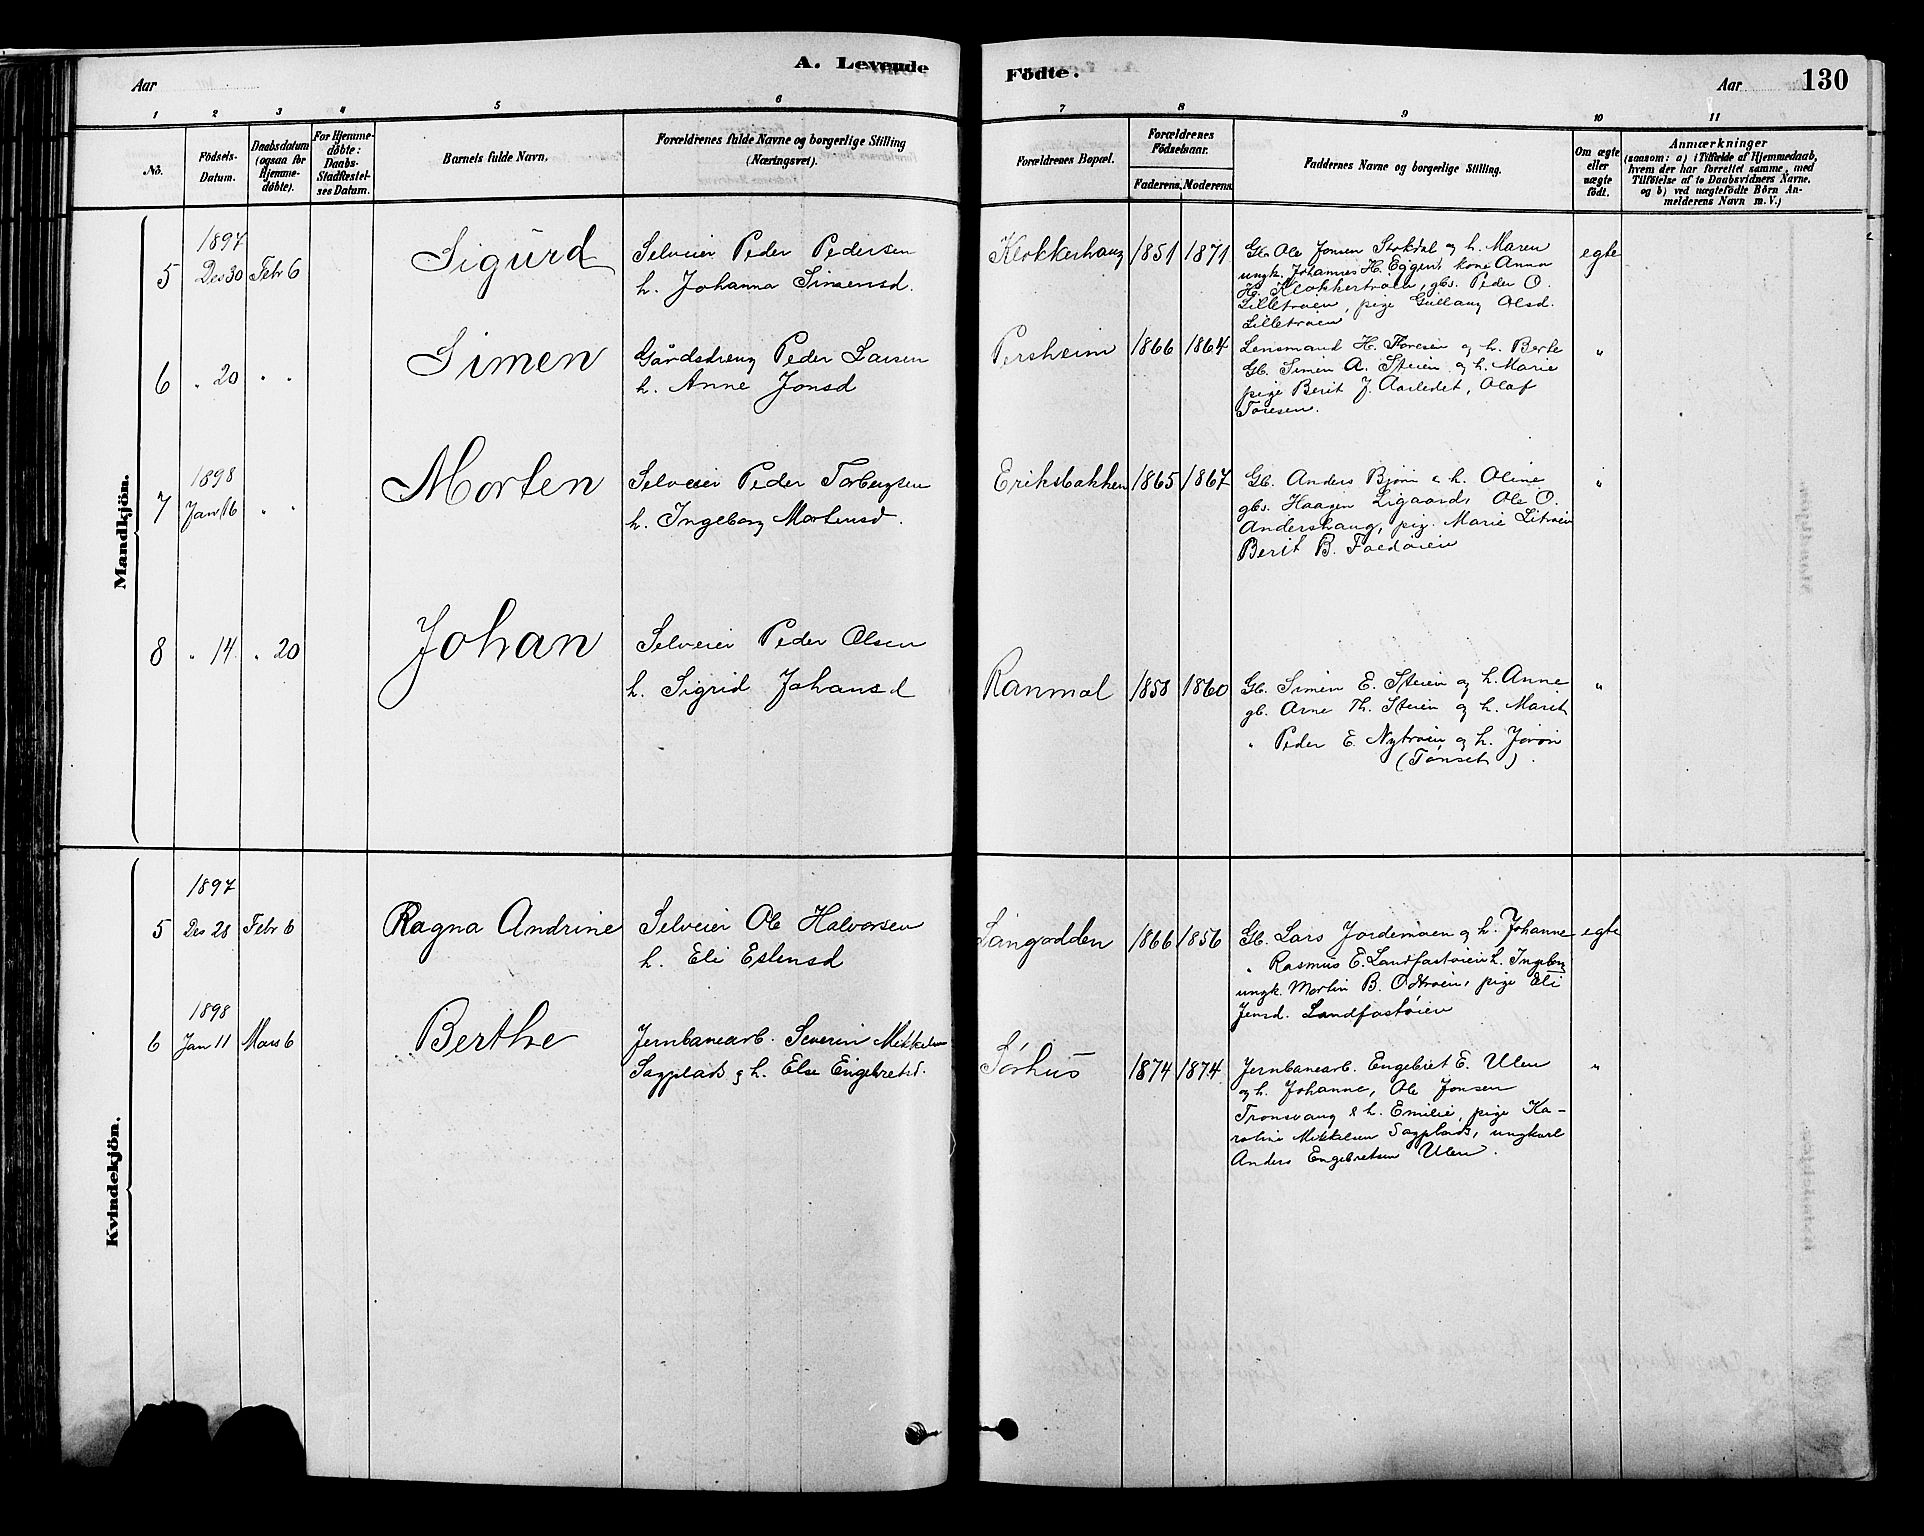 A. Levende Födte.
Aar
Aar 130
1 2 3 4 5 6 7 8 9 10 11
No.
Födsels-Datum.
Daabsdatum (ogsaa for Hjemme-døbte).
For Hjemme-døbte: Daabs-Stadfæstelses Datum.
Barnets fulde Navn.
Forældrenes fulde Navne og borgerlige Stilling (Næringsvei).
Forældrenes Bopæl.
Forældrenes Födselsaar.
Faderens. Moderens.
Faddernes Navne og borgerlige Stilling.
Om ægte eller uægte födt.
Anmærkninger
(saasom: a) i Tilfælde af Hjemmedaab, hvem der har forrettet samme, med Tilföielse af to Daabsvidners Navne, og b) ved uægtefödte Börn Anmelderens Navn m. V.)
Mandkjön.
1897
5 Des 30 Febr 6 Sigurd
Selveier Peder Pedersen
h. Johanna Simensd.
Klokkerhaug 1851 1871
Gb. Ole Jonsen Stokdal og h. Maren
ungk. Johannes H. Eggen, kone Anna
H. Klokkertrøen, gbs. Peder O.
Lilletrøen, pige Gullaug Olsd.
Lilletrøen
egte
6 " 20 " " Simen
Gårdsdreng Peder Larsen
h. Anne Jonsd
Persheim 1866 1864
Lensmand H. Thoresen og h. Berte
Gb. Simen A. Steien og h. Marie
pige Berit J. Aarledet, Olaf
Toresen.
"
1898
7 Jan 16 " " Morten
Selveier Peder Torbergsen
h. Ingeborg Mortensd.
Eriksbakken 1865 1867
Gb. Anders Bjøra & h. Oline
gbs. Haagen Ligaard, Ole O.
Andershaug, pig. Marie Litrøen
Berit B. Foldøien
"
8 " 14. " 20 Johan
Selveier Peder Olsen
h. Sigrid Johansd
Ranmæl 1858 1860
Gb. Simen E. Steien og h. Anne
gb. Arne Th. Steien og h. Marit
" Peder E. Nytrøen og h. Jorøn
(Tønset).
"
Kvindekjön.
1897
5 Des 28 Febr 6 Ragna Andrine
Selveier Ole Halvorsen
h. Eli Estensd
Langodden 1866 1856
Gb. Lars Jordemoen og h. Johanne
" Rasmus E. Landfastøien h. Ingeborg
ungk. Martin B. Odtrøen, pige Eli
Jensd. Landfastøien
egte
1898
6 Jan 11 Mars 6 Berthe
Jernbanearb. Severin Mikkelsen
Sagplads & h. Else Engebretsd.
Sørhus 1874 1874.
Jernbanearb. Engebret E. Ulen
og h. Johanne, Ole Jonsen
Tronsvang & h. Emilie, pige Ka-
roline Mikkelsen Sagplads, ungkarl
Anders Engebretsen Ulen.
"